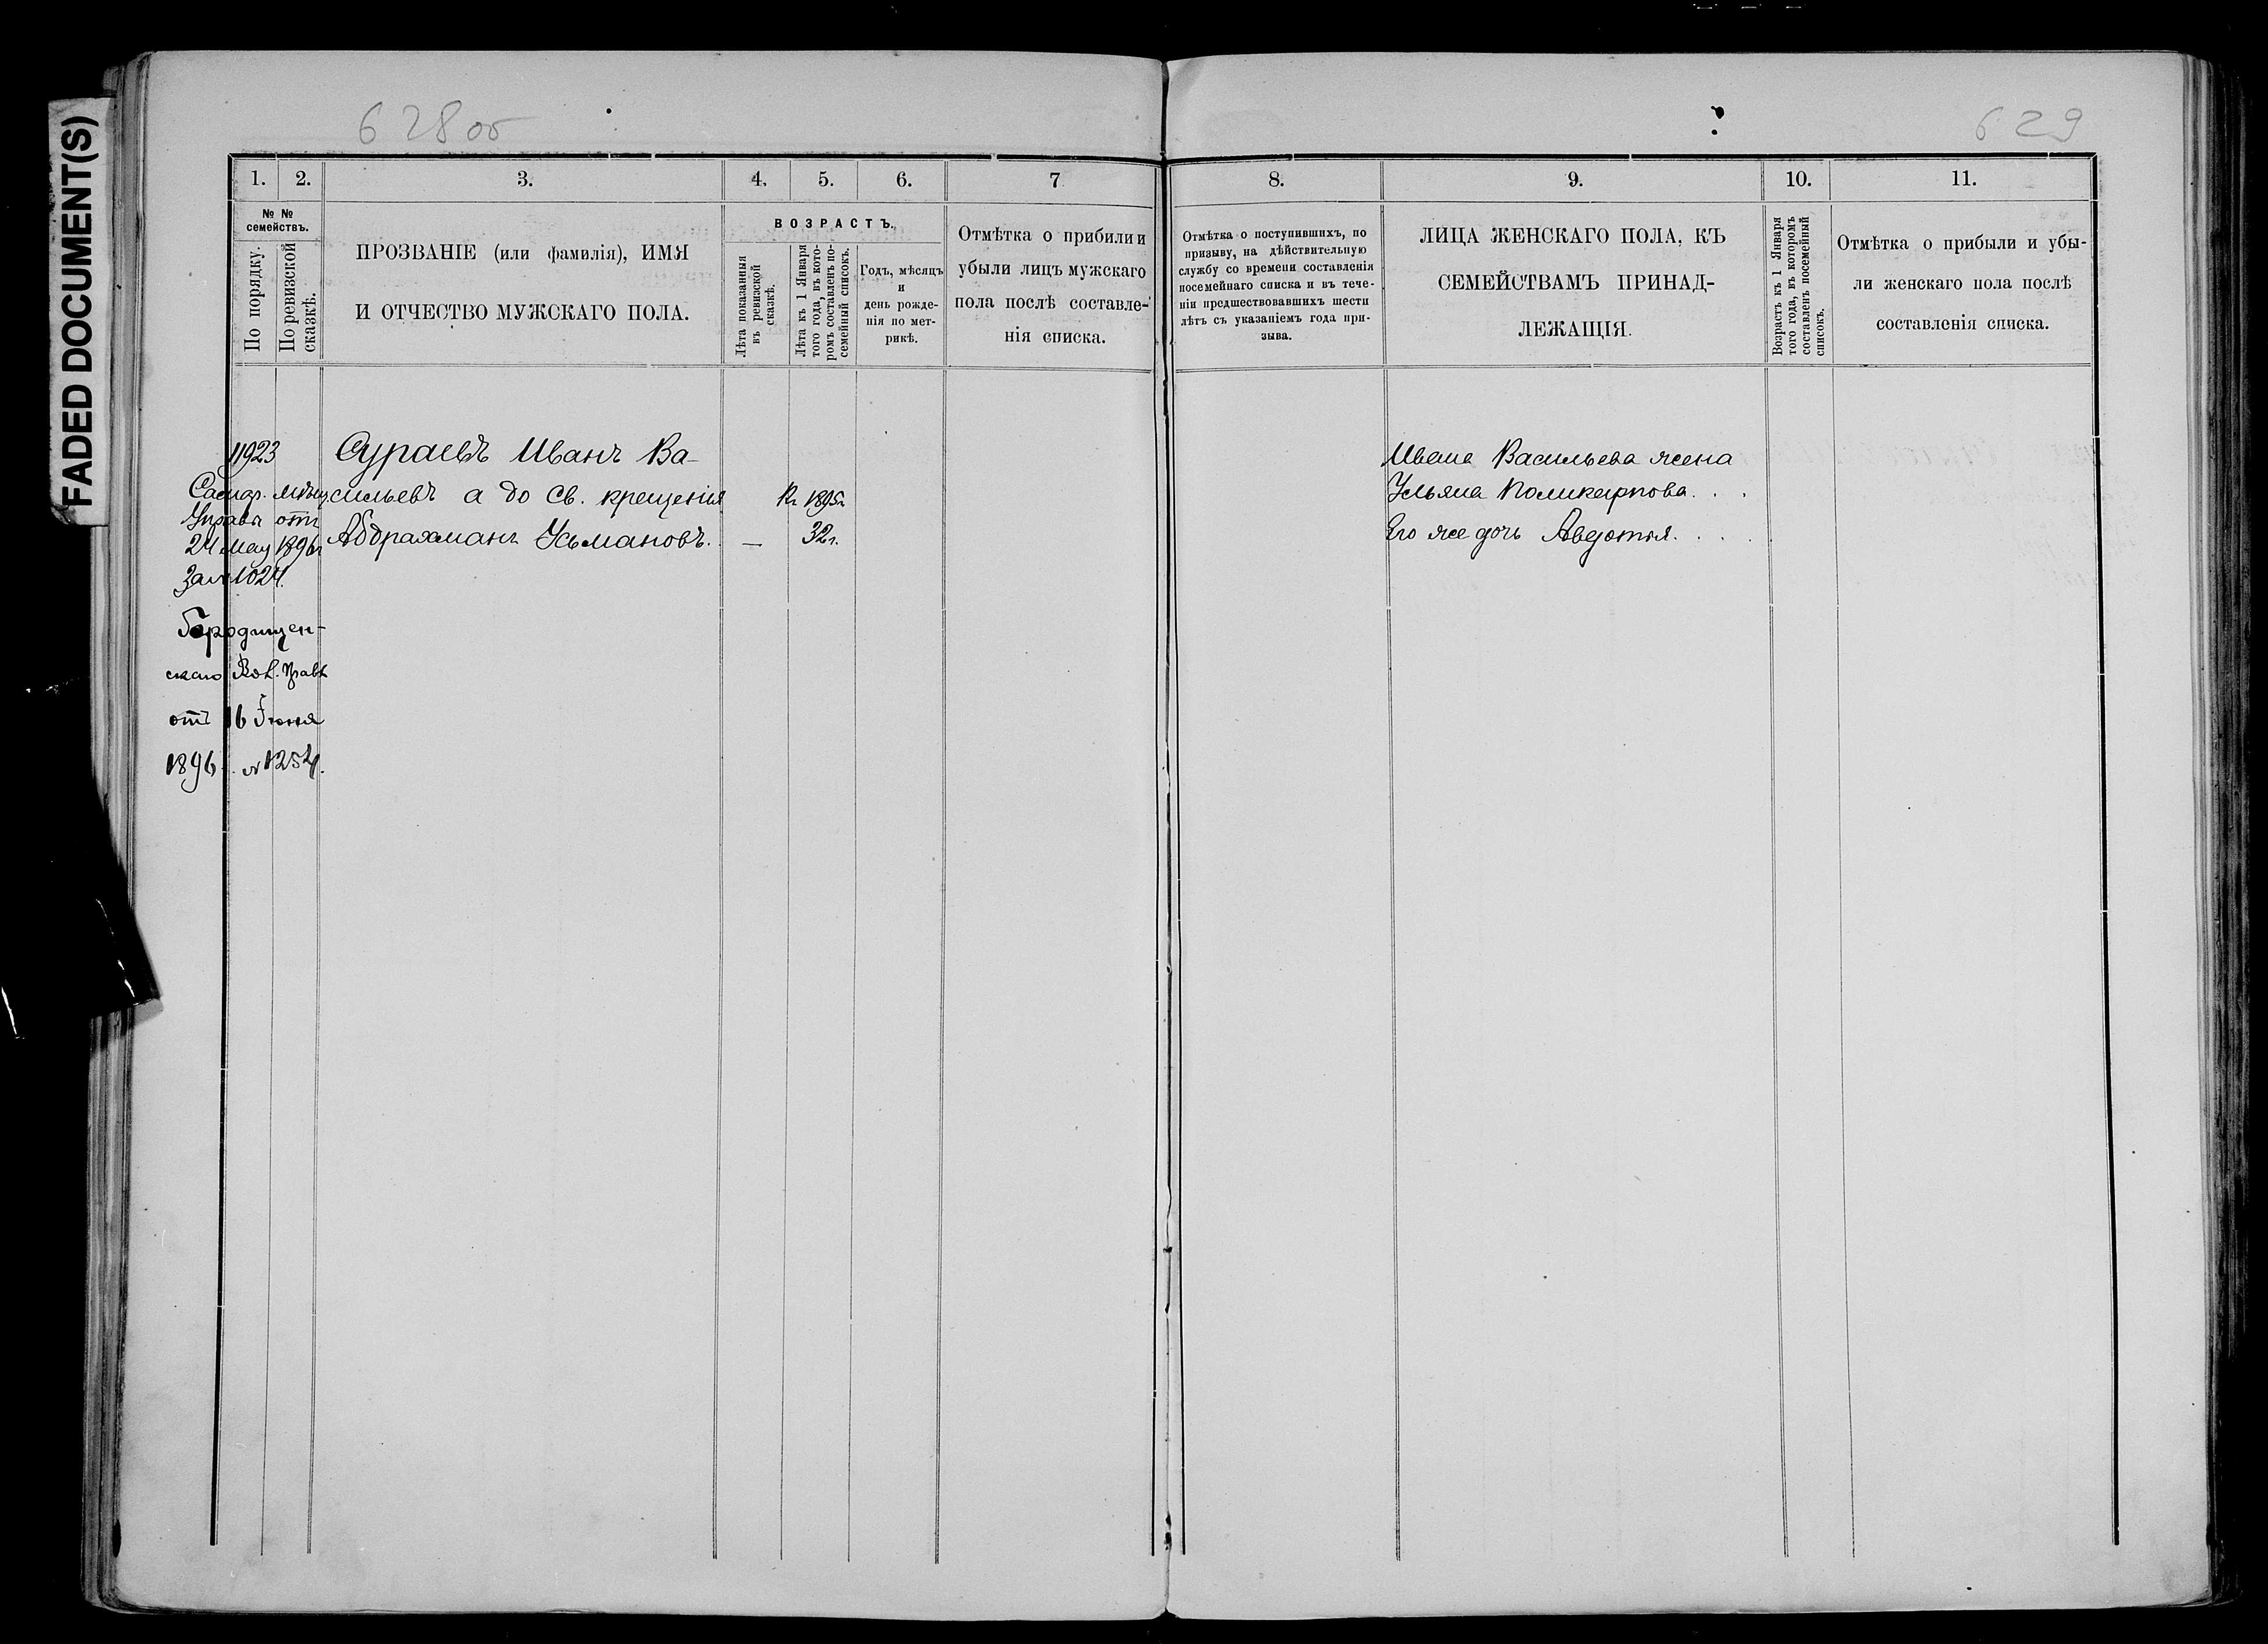 FADED DOCUMENT(S)
628 об
629
1. 2. 3. 4. 5. 6. 7
№ №
семействъ.
По порядку.
По ревизской
сказкѣ.
ПРОЗВАНІЕ (или фамилія), ИМЯ
И ОТЧЕСТВО МУЖСКАГО ПОЛА.
ВОЗРАСТЪ.
Лѣта показанныя
въ ревизской
сказкѣ.
Лѣта къ 1 Января
того года, въ кото-
ромъ составленъ по-
семейный списокъ.
Годъ, мѣсяцъ
и
день рожде-
нія по мет-
рикѣ.
Отмѣтка о прибыли и
убыли лицъ мужскаго
пола послѣ составле-
нія списка.
11923
Самар. мѣщ.
Управы отъ
24 мая 1896 г
за № 1024.
Городищен-
скаго Вол. Прав.
отъ 16 Іюня
1896 г. № 1254.
Сураевъ Иванъ Ва-
сильевъ а до св. крещенія
Абдрахманъ Усьмановъ. —
Къ 1895 г.
32 г.
8. 9. 10. 11.
Отмѣтка о поступившихъ, по
призыву, на дѣйствительную
службу со времени составленія
посемейнаго списка и въ тече-
ніи предшествовавшихъ шести
лѣтъ съ указаніемъ года при-
зыва.
ЛИЦА ЖЕНСКАГО ПОЛА, КЪ
СЕМЕЙСТВАМЪ ПРИНАД-
ЛЕЖАЩІЯ.
Возрастъ къ 1 Января
того года, въ которомъ
составленъ посемейный
списокъ.
Отмѣтка о прибыли и убы-
ли женскаго пола послѣ
составленія списка.
Ивана Васильева жена
Ульяна Поликарпова. . .
Его же дочь Авдотья. . . .